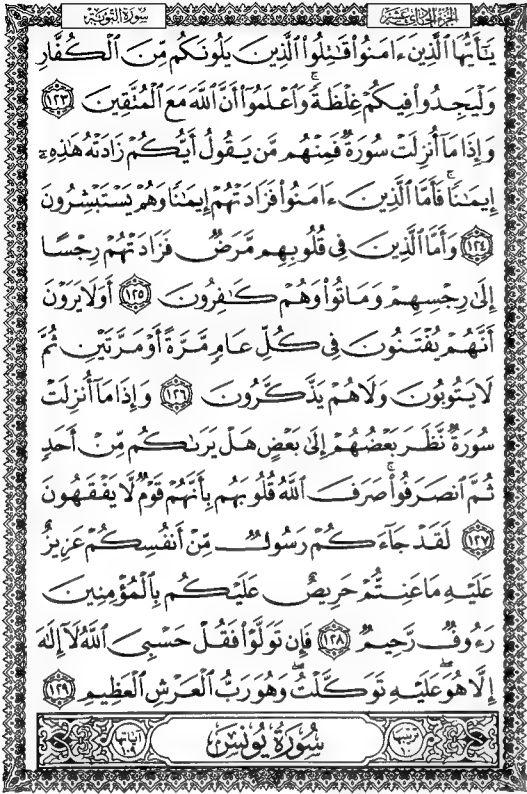 الجزء الحادي عشر
سورة التوبة
يَٰٓأَيُّهَا ٱلَّذِينَ ءَامَنُوا۟ قَٰتِلُوا۟ ٱلَّذِينَ يَلُونَكُم مِّنَ ٱلْكُفَّارِ
وَلْيَجِدُوا۟ فِيكُمْ غِلْظَةً ۚ وَٱعْلَمُوٓا۟ أَنَّ ٱللَّهَ مَعَ ٱلْمُتَّقِينَ ١٢٣
وَإِذَا مَآ أُنزِلَتْ سُورَةٌ فَمِنْهُم مَّن يَقُولُ أَيُّكُمْ زَادَتْهُ هَٰذِهِۦٓ
إِيمَٰنًا ۚ فَأَمَّا ٱلَّذِينَ ءَامَنُوا۟ فَزَادَتْهُمْ إِيمَٰنًا وَهُمْ يَسْتَبْشِرُونَ
١٢٤ وَأَمَّا ٱلَّذِينَ فِى قُلُوبِهِم مَّرَضٌ فَزَادَتْهُمْ رِجْسًا
إِلَىٰ رِجْسِهِمْ وَمَاتُوا۟ وَهُمْ كَٰفِرُونَ ١٢٥ أَوَلَا يَرَوْنَ
أَنَّهُمْ يُفْتَنُونَ فِى كُلِّ عَامٍ مَّرَّةً أَوْ مَرَّتَيْنِ ثُمَّ
لَا يَتُوبُونَ وَلَا هُمْ يَذَّكَّرُونَ ١٢٦ وَإِذَا مَآ أُنزِلَتْ
سُورَةٌ نَّظَرَ بَعْضُهُمْ إِلَىٰ بَعْضٍ هَلْ يَرَىٰكُم مِّنْ أَحَدٍ
ثُمَّ ٱنصَرَفُوا۟ ۚ صَرَفَ ٱللَّهُ قُلُوبَهُم بِأَنَّهُمْ قَوْمٌ لَّا يَفْقَهُونَ
١٢٧ لَقَدْ جَآءَكُمْ رَسُولٌ مِّنْ أَنفُسِكُمْ عَزِيزٌ
عَلَيْهِ مَا عَنِتُّمْ حَرِيصٌ عَلَيْكُم بِٱلْمُؤْمِنِينَ
رَءُوفٌ رَّحِيمٌ ١٢٨ فَإِن تَوَلَّوْا۟ فَقُلْ حَسْبِىَ ٱللَّهُ لَآ إِلَٰهَ
إِلَّا هُوَ ۖ عَلَيْهِ تَوَكَّلْتُ ۖ وَهُوَ رَبُّ ٱلْعَرْشِ ٱلْعَظِيمِ ١٢٩
ترتيبها ١٠ سُورَةُ يُونُسَ آياتها ١٠٩